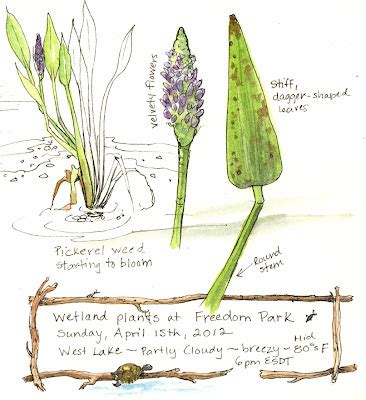 velvety flowers
Stiff,
dagger-shaped
leaves
Pickerel weed
starting to bloom
Round
stem
Wetland plants at Freedom Park
Sunday, April 15th, 2012
West Lake ~ Partly Cloudy ~ breezy ~ Mid
80°s F
6pm ESDT